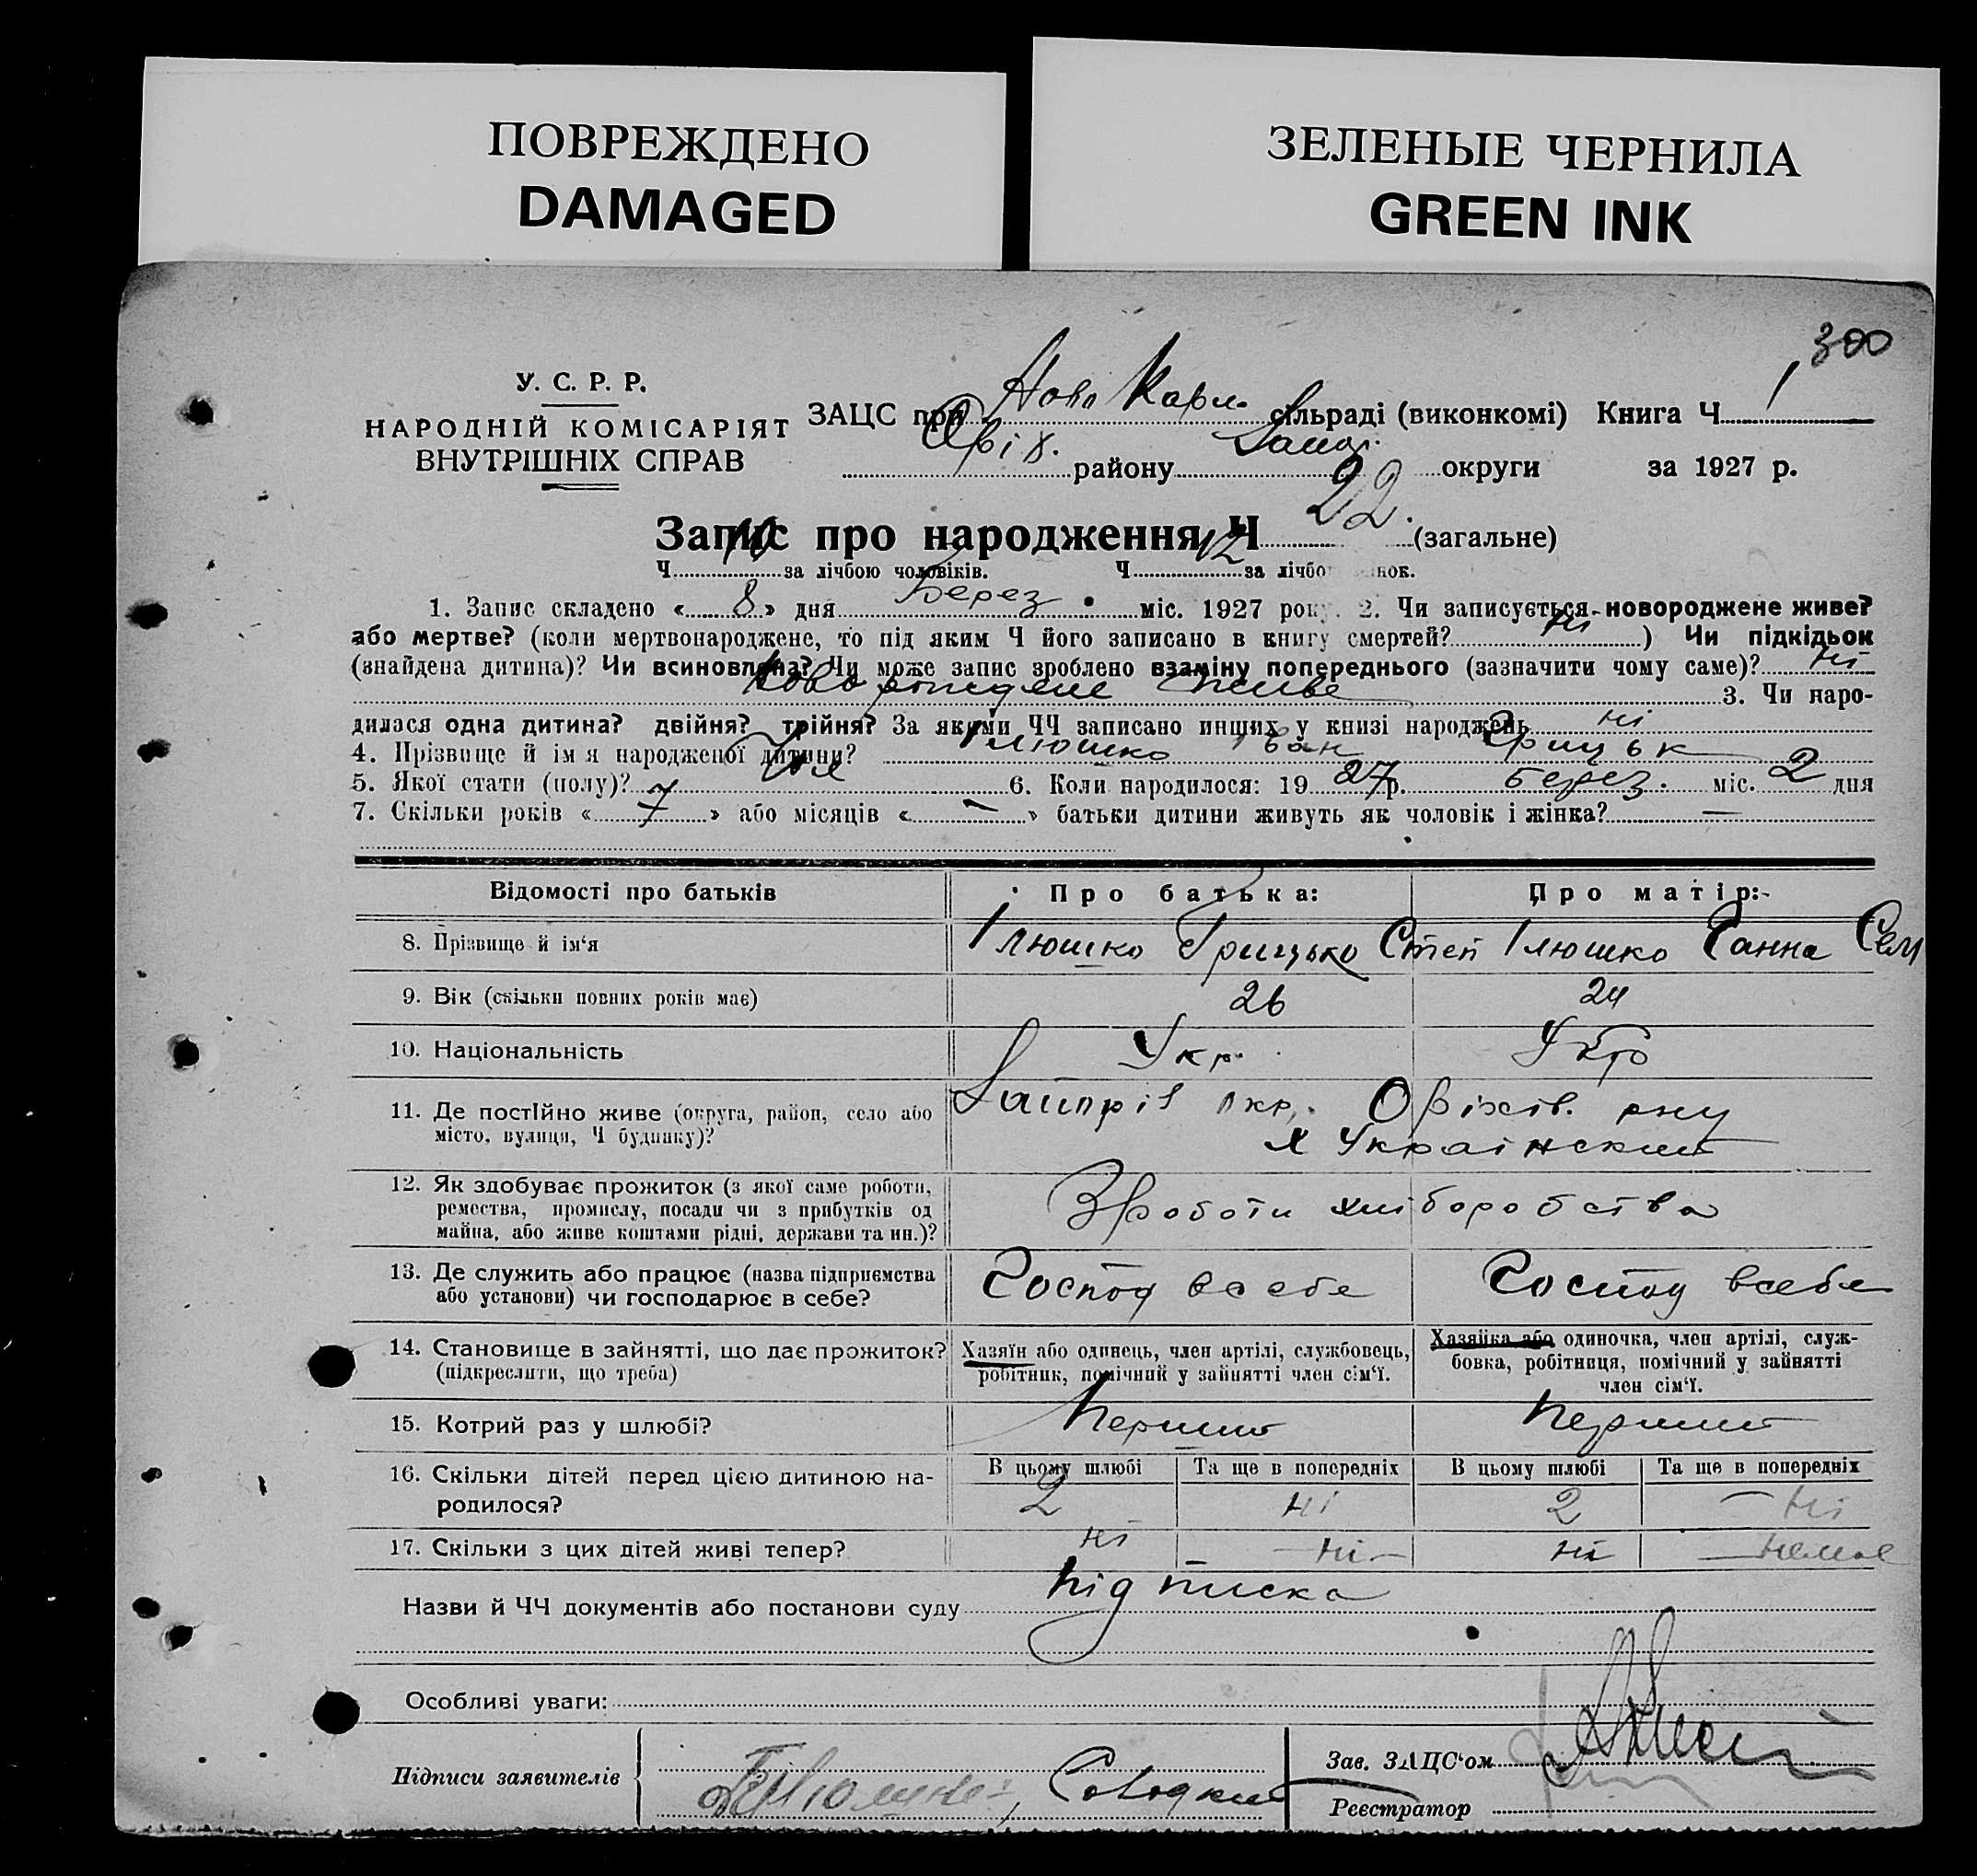 ПОВРЕЖДЕНО
DAMAGED
ЗЕЛЕНЫЕ ЧЕРНИЛА
GREEN INK
300
У. С. Р. Р.
НАРОДНІЙ КОМІСАРІЯТ
ВНУТРІШНІХ СПРАВ
ЗАЦС при Ново Карл. сільраді (виконкомі) Книга Ч 1
Оріх. району Запор. округи за 1927 р.
Запис про народження Ч 22. (загальне)
Ч 10 за лічбою чоловіків. Ч 12 за лічбо нок.
1. Запис складено « 8 » дня Берез міс. 1927 року. 2. Чи записується новороджене живе?
або мертве? (коли мертвонароджене, то під яким Ч його записано в книгу смертей? ні ) Чи підкідьок
(знайдена дитина)? Чи всиновлена? Чи може запис зроблено взаміну попереднього (зазначити чому саме)? ні
новорождене живе 3. Чи наро-
дилася одна дитина? двійня? трійня? За якими ЧЧ записано инших у книзі народжень ні
4. Прізвище й ім я народженої дитини? Ілюшко Іван Грицьк
5. Якої стати (полу)? Чол 6. Коли народилося: 19 27 р. Берез. міс. 2 дня
7. Скільки років « 7 » або місяців « — » батьки дитини живуть як чоловік і жінка? —
Відомості про батьків Про батька: Про матір:
8. Прізвище й ім‘я Ілюшко Грицько Степ Ілюшко Ганна Сем
9. Вік (скільки повних років має) 26 24
10. Національність Укр. Укр
11. Де постійно живе (округа, район, село або місто, вулиця, Ч будинку)? Запоріз окр. Оріхів. рну
х Український
12. Як здобуває прожиток (з якої саме роботи,
ремества, промислу, посади чи з прибутків од
майна, або живе коштами рідні, держави та ин.)? З роботи хліборобства
13. Де служить або працює (назва підприємства
або установи) чи господарює в себе? Господ в себе Господ в себе
14. Становище в зайнятті, що дає прожиток?
(підкреслити, що треба)
Хазяїн або одинець, член артілі, службовець,
робітник, помічний у зайнятті член сім‘ї.
Хазяйка або одиночка, член артілі, служ-
бовка, робітниця, помічний у зайнятті
член сім‘ї.
15. Котрий раз у шлюбі? Перший Перший
16. Скільки дітей перед цією дитиною на-
родилося?
В цьому шлюбі Та ще в попередніх В цьому шлюбі Та ще в попередніх
2 ні 2 — ні
17. Скільки з цих дітей живі тепер? ні — ні — ні — немає
Назви й ЧЧ документів або постанови суду підписка
Особливі уваги:
Підписи заявителів
Зав. ЗАЦС‘ом
Реєстратор